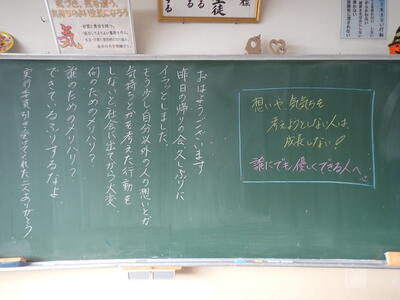 おはようございます
昨日の帰りの会、久しぶりに
イラッとしました。
もう少し自分以外の人の想いとか
気持ちとかを考えた行動を
しないと、社会に出てから大変。
何のためのメリハリ?
誰のためのメリハリ?
できているふりするなよ。
実行委員、引き受けてくれた二人ありがとう
想いや気持ちを
考えようとしない人は、
成長しない!
誰にでも優しくできる人へ
気